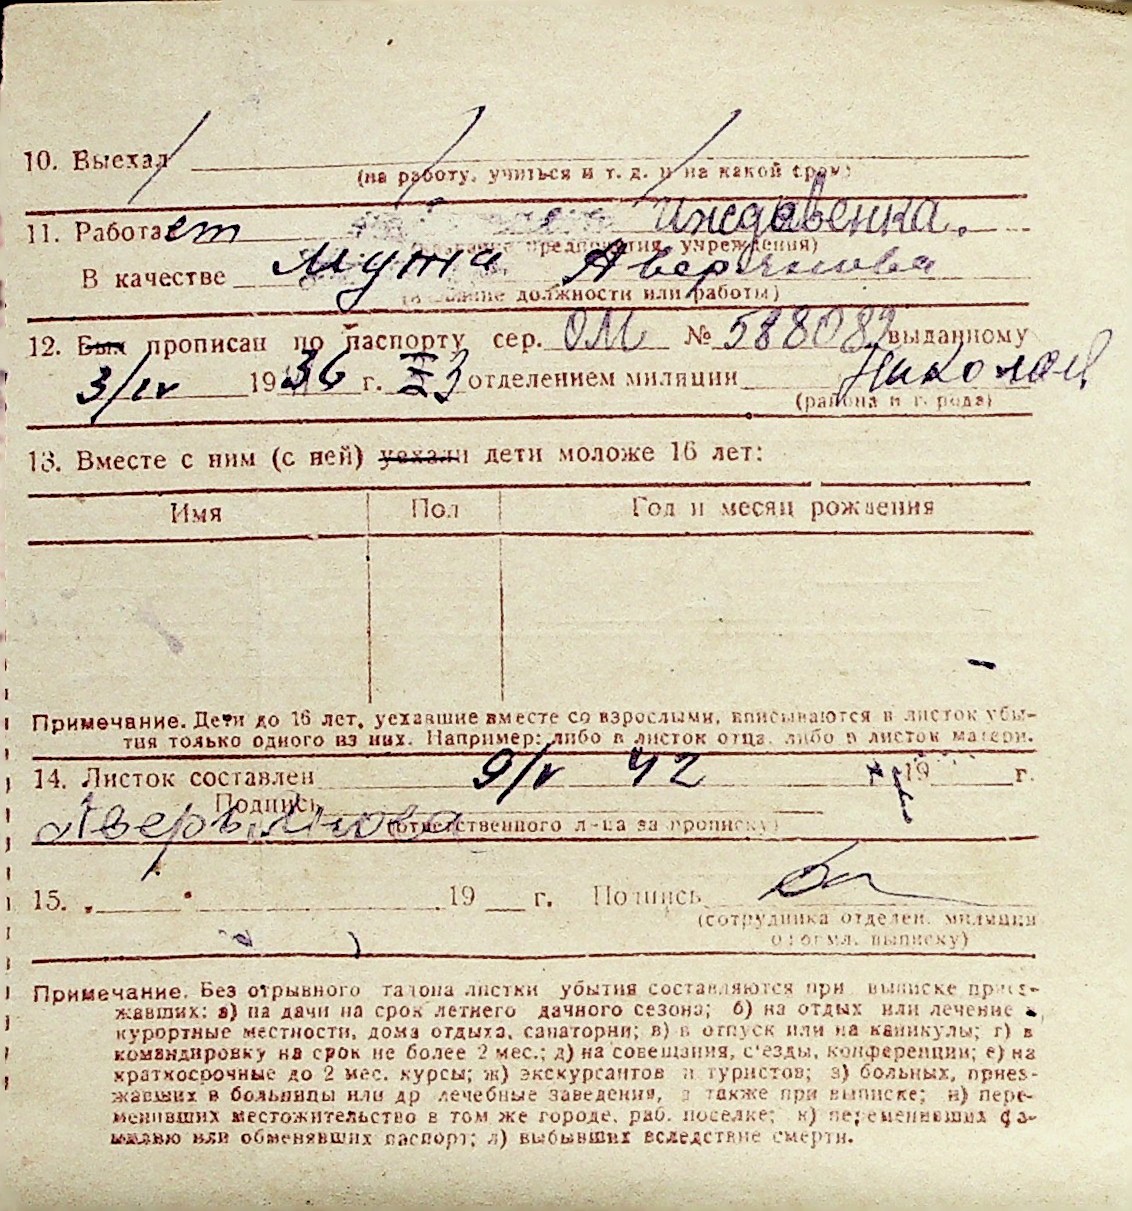 10. Выехал
(на работу, учиться и т. д. и на какой срок)
11. Работает иждивенка.
предприятия, учреждения)
В качестве мужа Аверьянова
(название должности или работы)
12. Был прописан по паспорту сер. ОМ № 588082 выданному
3/IV 1936 г. отделением милиции Николаев
(района и города)
13. Вместе с ним (с ней) уехали дети моложе 16 лет:
Имя Пол Год и месяц рождения
Примечание. Дети до 16 лет, уехавшие вместе со взрослыми, вписываются в листок убы-
тия только одного из них. Например: либо в листок отца, либо в листок матери.
14. Листок составлен 9/V 42 19 г.
Подпись
Аверьянова (ответственного л-ца за прописку)
15. „ " 19 г. Подпись
(сотрудника отделен. милиции
оформл. выписку)
Примечание. Без отрывного талона листки убытия составляются при выписке приез-
жавших: а) на дачи на срок летнего дачного сезона; б) на отдых или лечение в
курортные местности, дома отдыха, санатории; в) в отпуск или на каникулы; г) в
командировку на срок не более 2 мес.; д) на совещания, с'езды, конференции; е) на
краткосрочные до 2 мес. курсы; ж) экскурсантов и туристов; з) больных, приез-
жавших в больницы или др лечебные заведения, а также при выписке; и) пере-
менивших местожительство в том же городе, раб. поселке; к) переменивших фа-
милию или обменявших паспорт; л) выбывших вследствие смерти.